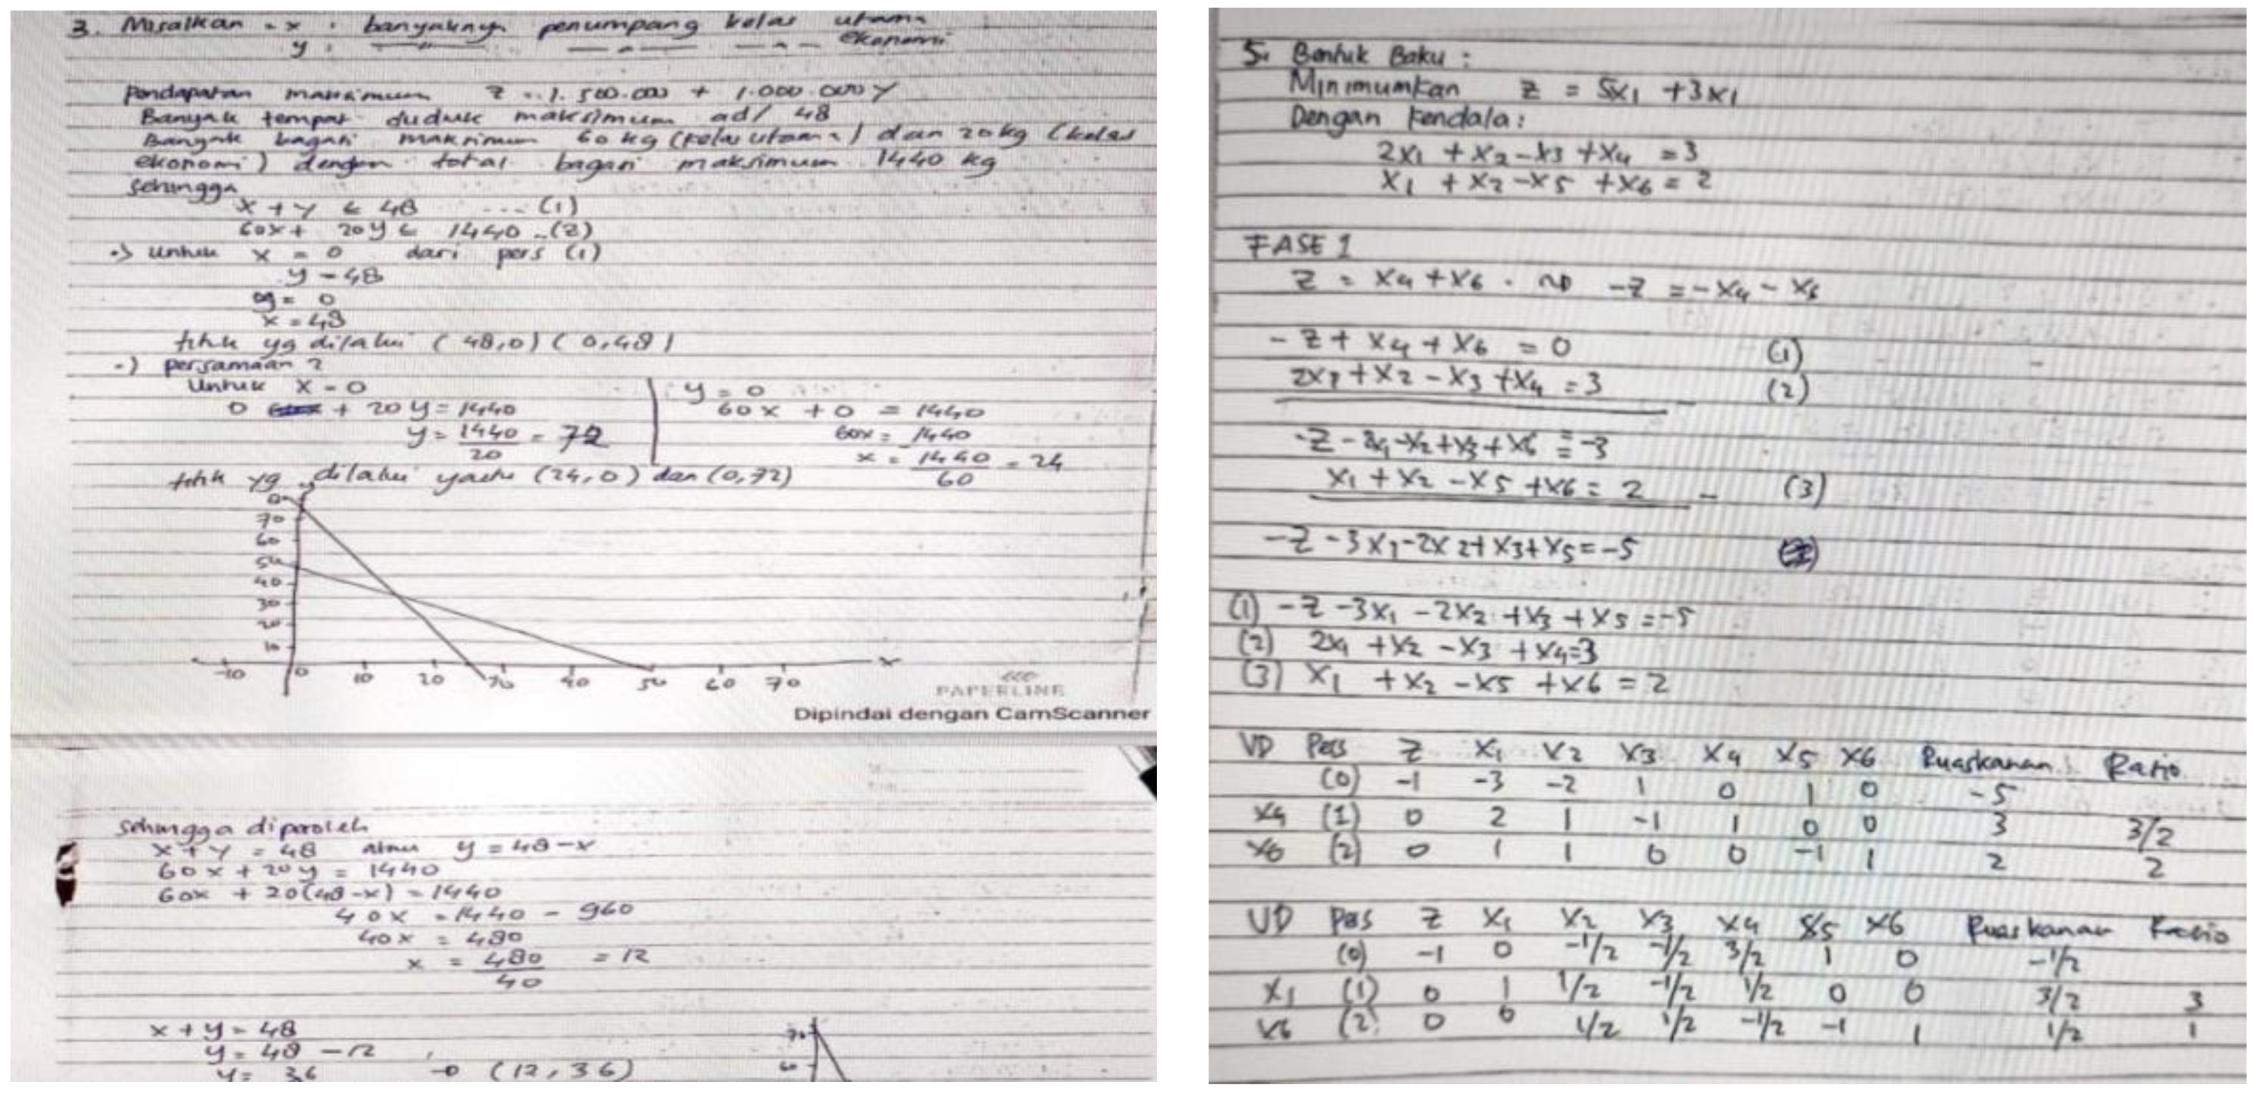 3. Misalkan = x : banyaknya penumpang kelas utama
y : —— " —— — " — — " — ekonomi
Pendapatan maksimum z = 1.500.000 + 1.000.000 y
Banyak tempat duduk maksimum ad/ 48
Banyak bagasi maksimum 60 kg (kelas utama) dan 20kg (kelas
ekonomi) dengan total bagasi maksimum 1440 kg
sehingga
x + y ≤ 48 ... (1)
60x + 20y ≤ 1440 .. (2)
•) untuk x = 0 dari pers (1)
y = 48
y = 0
x = 48
titik yg dilalui (48,0) (0,48)
-) persamaan 2
Untuk x = 0
0 + 20y = 1440
y = 1440/20 = 72
y = 0
60x + 0 = 1440
60x = 1440
x = 1440/60 = 24
titik yg dilalui yaitu (24,0) dan (0,72)
y
80
70
60
50
40
30
20
10
-10 0 10 20 30 40 50 60 70 x
PAPERLINE
Dipindai dengan CamScanner
Sehingga diperoleh
x + y = 48 atau y = 48 - x
60x + 20y = 1440
60x + 20(48-x) = 1440
40x = 1440 - 960
40x = 480
x = 480/40 = 12
x + y = 48
y = 48 - 12
y = 36 → (12,36)
70
60
5. Bentuk Baku :
Minimumkan z = 5x1 + 3x1
Dengan kendala :
2x1 + x2 - x3 + x4 = 3
x1 + x2 - x5 + x6 = 2
FASE 1
z = x4 + x6 . → -z = -x4 - x6
-z + x4 + x6 = 0 (1)
2x1 + x2 - x3 + x4 = 3 (2)
-z - 2x1 - x2 + x3 + x6 = -3
x1 + x2 - x5 + x6 = 2 - (3)
-z - 3x1 - 2x2 + x3 + x5 = -5
(1) -z - 3x1 - 2x2 + x3 + x5 = -5
(2) 2x1 + x2 - x3 + x4 = 3
(3) x1 + x2 - x5 + x6 = 2
VD Pers z x1 x2 x3 x4 x5 x6 Ruas kanan Ratio
(0) -1 -3 -2 1 0 1 0 -5
x4 (1) 0 2 1 -1 1 0 0 3 3/2
x6 (2) 0 1 1 0 0 -1 1 2 2
VD Pers z x1 x2 x3 x4 x5 x6 Ruas kanan Ratio
(0) -1 0 -1/2 -1/2 3/2 1 0 -1/2
x1 (1) 0 1 1/2 -1/2 1/2 0 0 3/2 3
x6 (2) 0 0 1/2 1/2 -1/2 -1 1 1/2 1